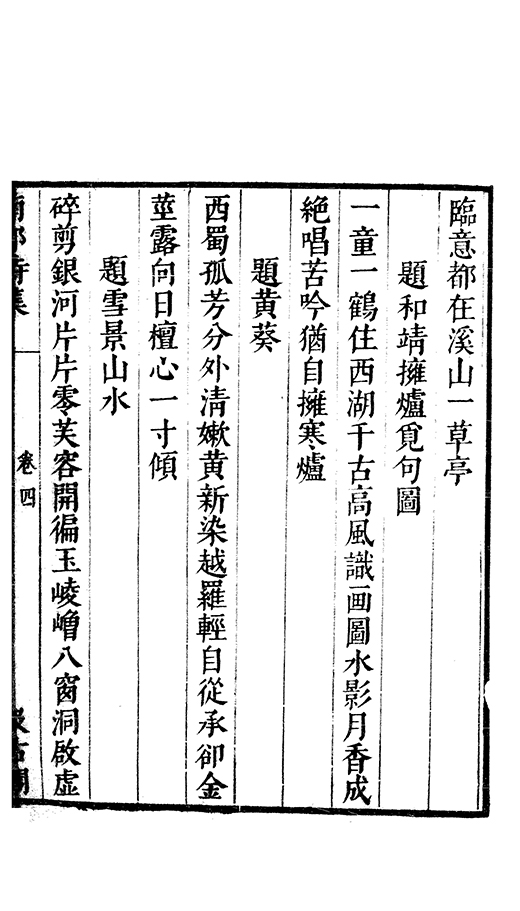 臨意都在溪山一草亭
題和靖擁爐覓句圖
一童一鶴住西湖千古高風識画圖水影月香成
絶唱苦吟猶自擁寒爐
題黄葵
西蜀孤芳分外清嫰黄新染越羅輕自從承卻金
莖露向日檀心一寸傾
題雪景山水
碎剪銀河片片零芙容開徧玉崚嶒八窗洞啟虚
卷四